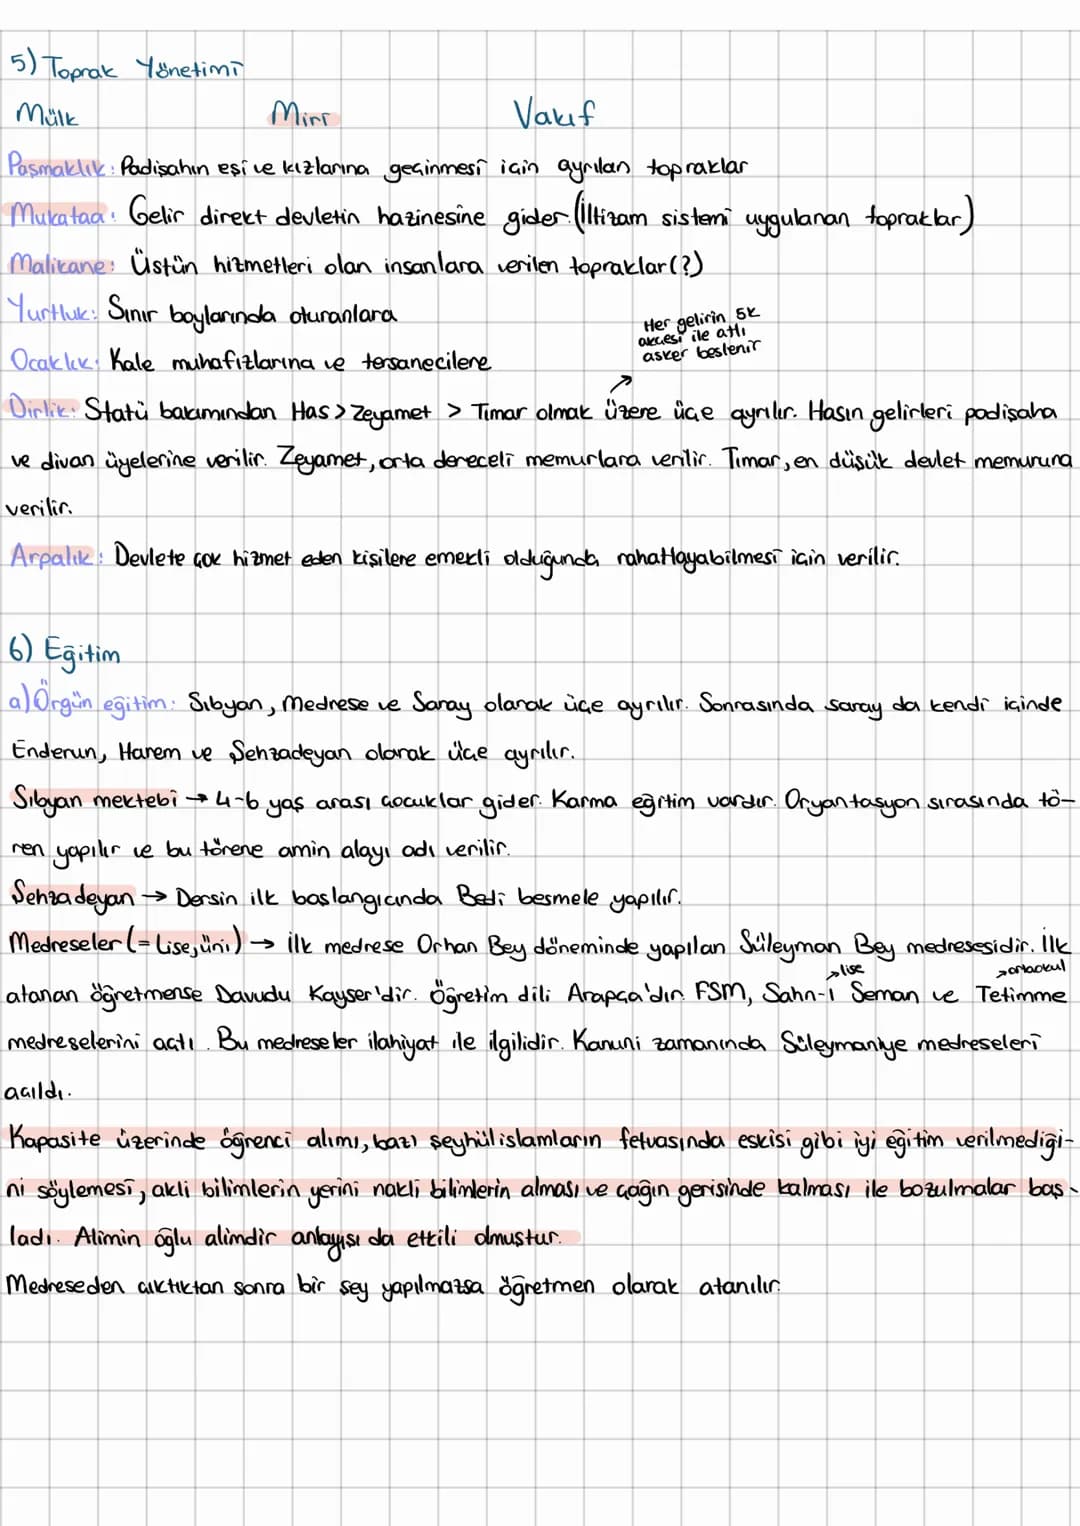 5) Toprak Yönetimi
Mülk Miri Vakıf
Paşmaklık: Padişahın eşi ve kızlarına geçinmesi için ayrılan topraklar
Mukataa: Gelir direkt devletin hazinesine gider. (İltizam sistemi uygulanan topraklar)
Malikane: Üstün hizmetleri olan insanlara verilen topraklar (?)
Yurtluk: Sınır boylarında oturanlara
Ocaklık: Kale muhafızlarına ve tersanecilene
Her gelirin 5k
akçesi ile atlı
asker beslenir
Dirlik: Statü bakımından Has > Zeyamet > Tımar olmak üzere üçe ayrılır. Hasın gelirleri padişaha
ve divan üyelerine verilir. Zeyamet, orta dereceli memurlara verilir. Tımar, en düşük devlet memuruna
verilir.
Arpalık: Devlete çok hizmet eden kişilere emekli olduğunda rahatlayabilmesi için verilir.
6) Eğitim
a) Örgün eğitim: Sıbyan, Medrese ve Saray olarak üçe ayrılır. Sonrasında saray da kendi içinde
Enderun, Harem ve Şehzadeyan olarak üçe ayrılır.
Sıbyan mektebi → 4-6 yaş arası çocuklar gider. Karma eğitim vardır. Oryantasyon sırasında tö-
ren yapılır ve bu törene amin alayı adı verilir.
Şehzadeyan → Dersin ilk başlangıcında Bedi besmele yapılır.
Medreseler (= Lise, üni) → İlk medrese Orhan Bey döneminde yapılan Süleyman Bey medresesidir. İlk
→ lise → ortaokul
atanan öğretmense Davudu Kayser'dir. Öğretim dili Arapça'dır. FSM, Sahn-ı Seman ve Tetimme
medreselerini açtı. Bu medreseler ilahiyat ile ilgilidir. Kanuni zamanında Süleymaniye medreseleri
açıldı.
Kapasite üzerinde öğrenci alımı, bazı şeyhülislamların fetvasında eskisi gibi iyi eğitim verilmediği-
ni söylemesi, akli bilimlerin yerini nakli bilimlerin alması ve çağın gerisinde kalması ile bozulmalar baş-
ladı. Alimin oğlu alimdir anlayışı da etkili olmuştur.
Medreseden çıktıktan sonra bir şey yapılmazsa öğretmen olarak atanılır.